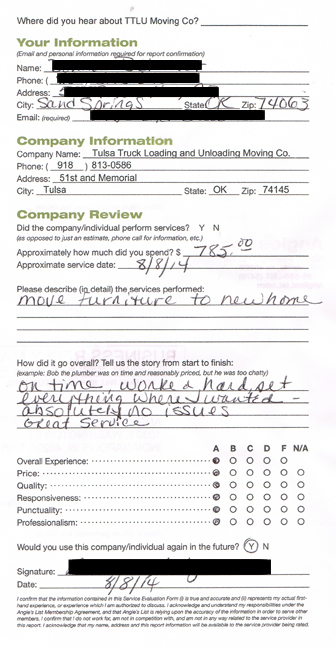 Where did you hear about TTLU Moving Co?
Your Information
(Email and personal information required for report confirmation)
Name:
Phone: (
Address:
City: Sand Springs State: OK Zip: 74063
Email: (required)
Company Information
Company Name: Tulsa Truck Loading and Unloading Moving Co.
Phone: ( 918 ) 813-0586
Address: 51st and Memorial
City: Tulsa State: OK Zip: 74145
Company Review
Did the company/individual perform services? Y N
(as opposed to just an estimate, phone call for information, etc.)
Approximately how much did you spend? $ 785.00
Approximate service date: 8/8/14
Please describe (in detail) the services performed:
move furniture to new home
How did it go overall? Tell us the story from start to finish:
(example: Bob the plumber was on time and reasonably priced, but he was too chatty)
on time, worked hard, set
everything where I wanted -
absolutely no issues
Great Service
A B C D F N/A
Overall Experience:
Price:
Quality:
Responsiveness:
Punctuality:
Professionalism:
Would you use this company/individual again in the future? Y N
Signature:
Date: 8/8/14
I confirm that the information contained in this Service Evaluation Form (i) is true and accurate and (ii) represents my actual first-
hand experience, or experience which I am authorized to discuss. I acknowledge and understand my responsibilities under the
Angie's List Membership Agreement, and that Angie's List is relying upon the accuracy of the information in order to serve other
members. I confirm that I do not work for, am not in competition with, and am not in any way related to the service provider in
this report. I acknowledge that my name, address and this report information will be available to the service provider being rated.